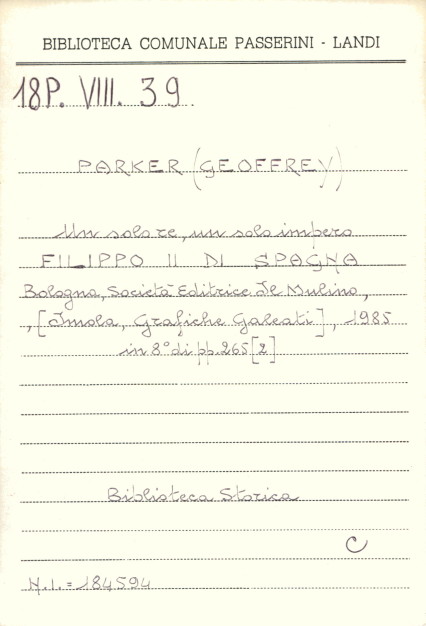 BIBLIOTECA COMUNALE PASSERINI - LANDI
18P. VIII. 39.
PARKER (GEOFFREY)
Un solo re, un solo impero
FILIPPO II DI SPAGNA
Bologna, Società Editrice Il Mulino,
, [Imola, Grafiche Galeati], 1985
in 8° di pp. 265 [2]
Biblioteca Storica
C
N.I. = 184594